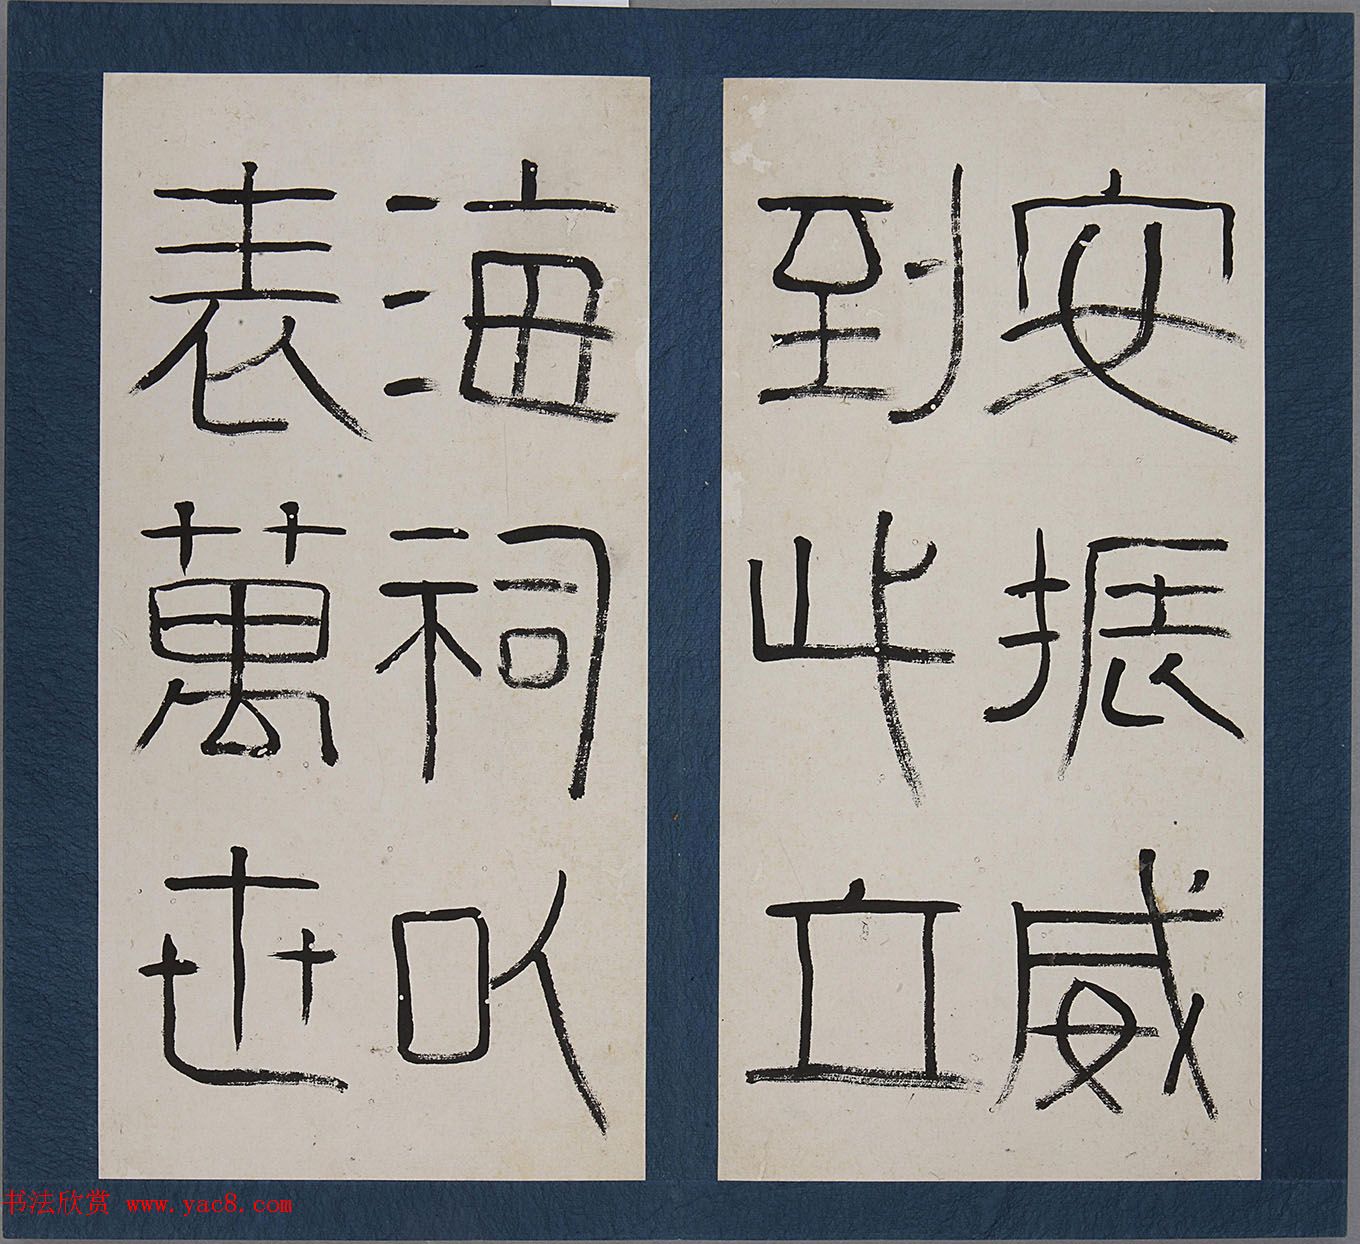 安振威
到此立
海祠以
表萬世
书法欣赏 www.yac8.com